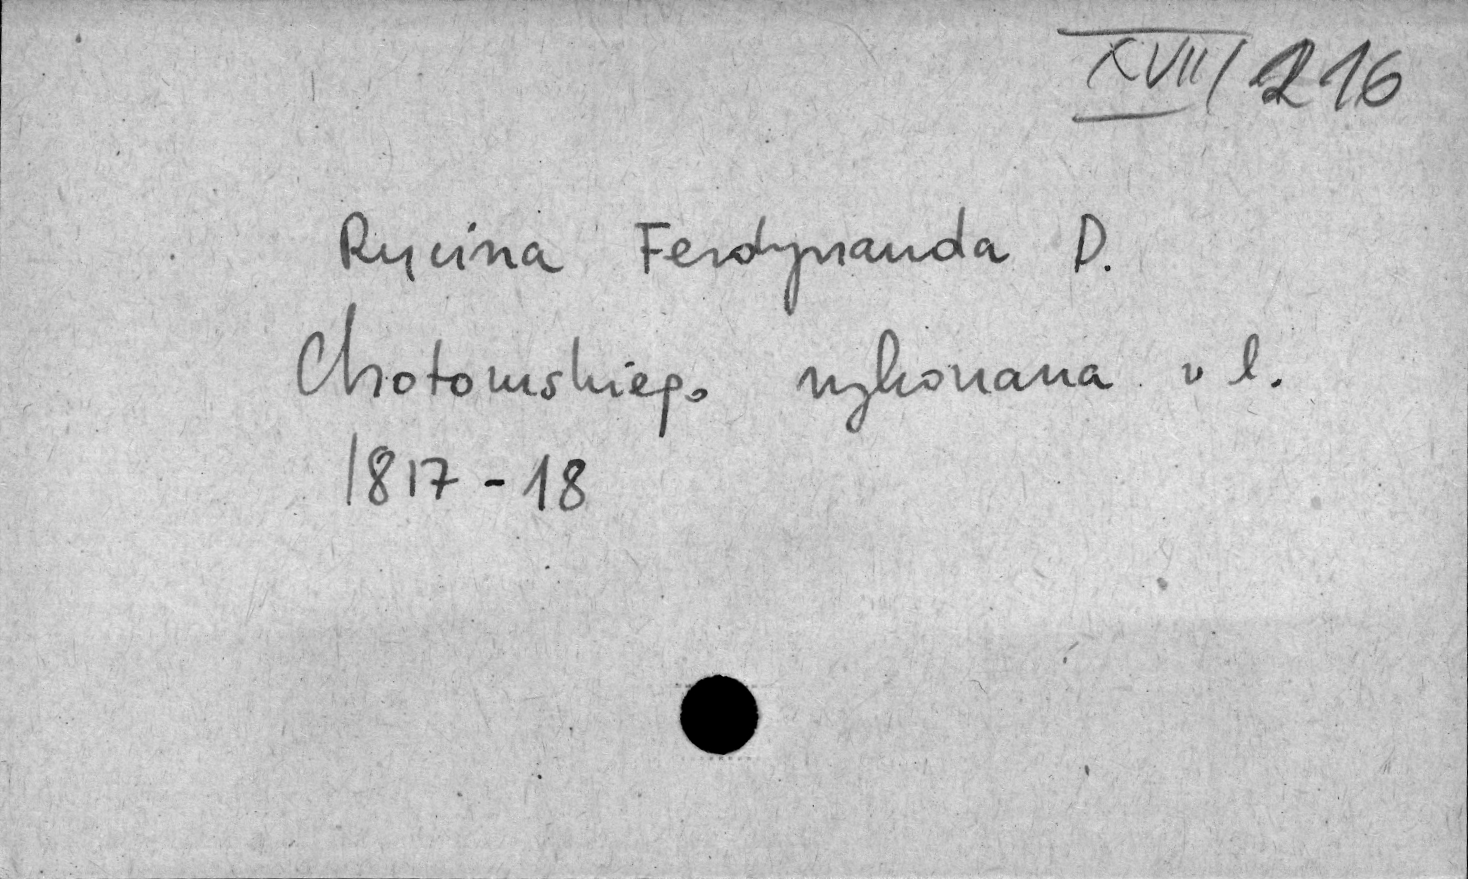 XVII/216
Rycina Ferdynanda D.
Chotomskiego wykonana w l.
1817-18